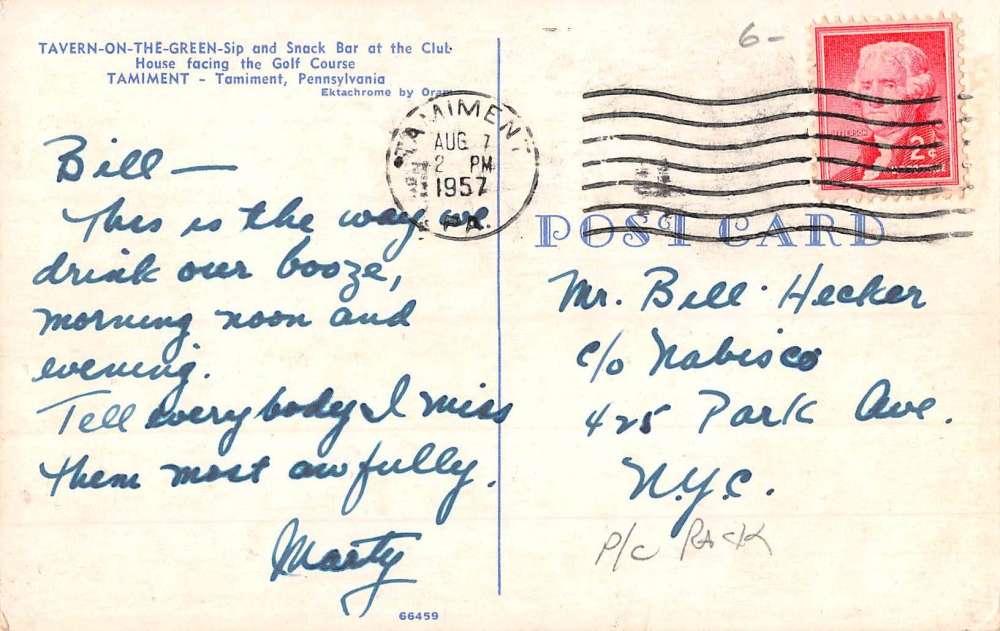 TAVERN-ON-THE-GREEN-Sip and Snack Bar at the Club
House facing the Golf Course
TAMIMENT - Tamiment, Pennsylvania
Ektachrome by Oram
Bill —
This is the way we
drink our booze,
morning noon and
evening.
Tell everybody I miss
them most awfully.
Marty
66459
TAMIMENT
AUG 7
2 PM
1957
PA.
6-
JEFFERSON
2¢
POST CARD
Mr. Bill Hecker
c/o Nabisco
425 Park Ave.
N.Y.C.
P/C RACK